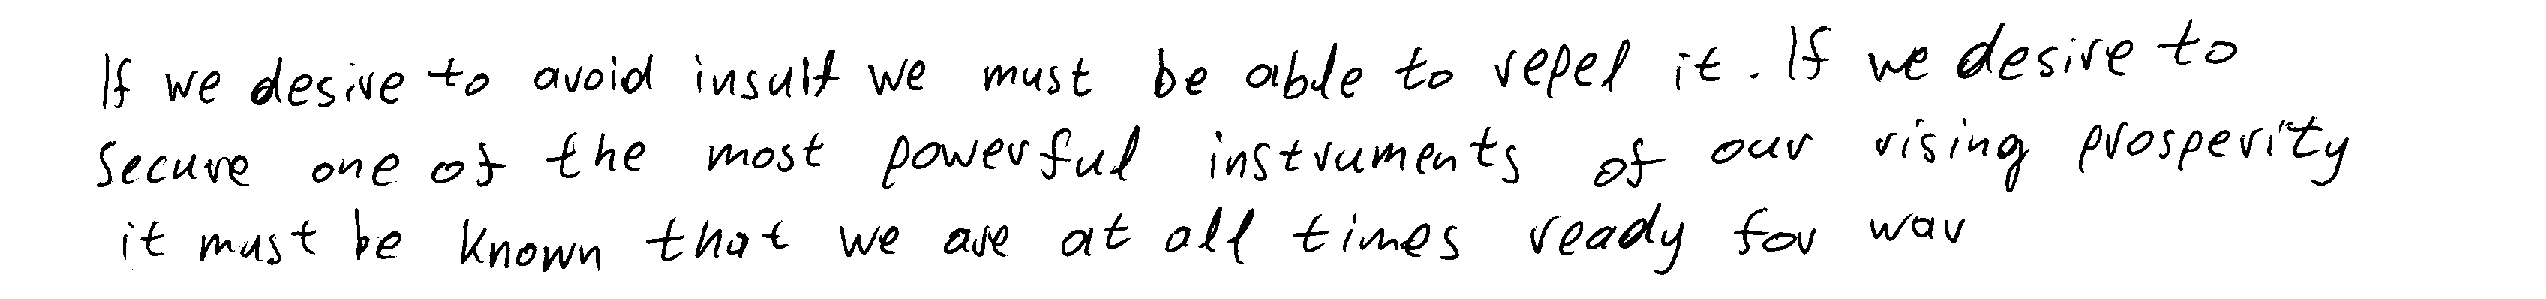 If we desire to avoid insult we must be able to repel it. If we desire to
secure one of the most powerful instruments of our rising prosperity
it must be known that we are at all times ready for war